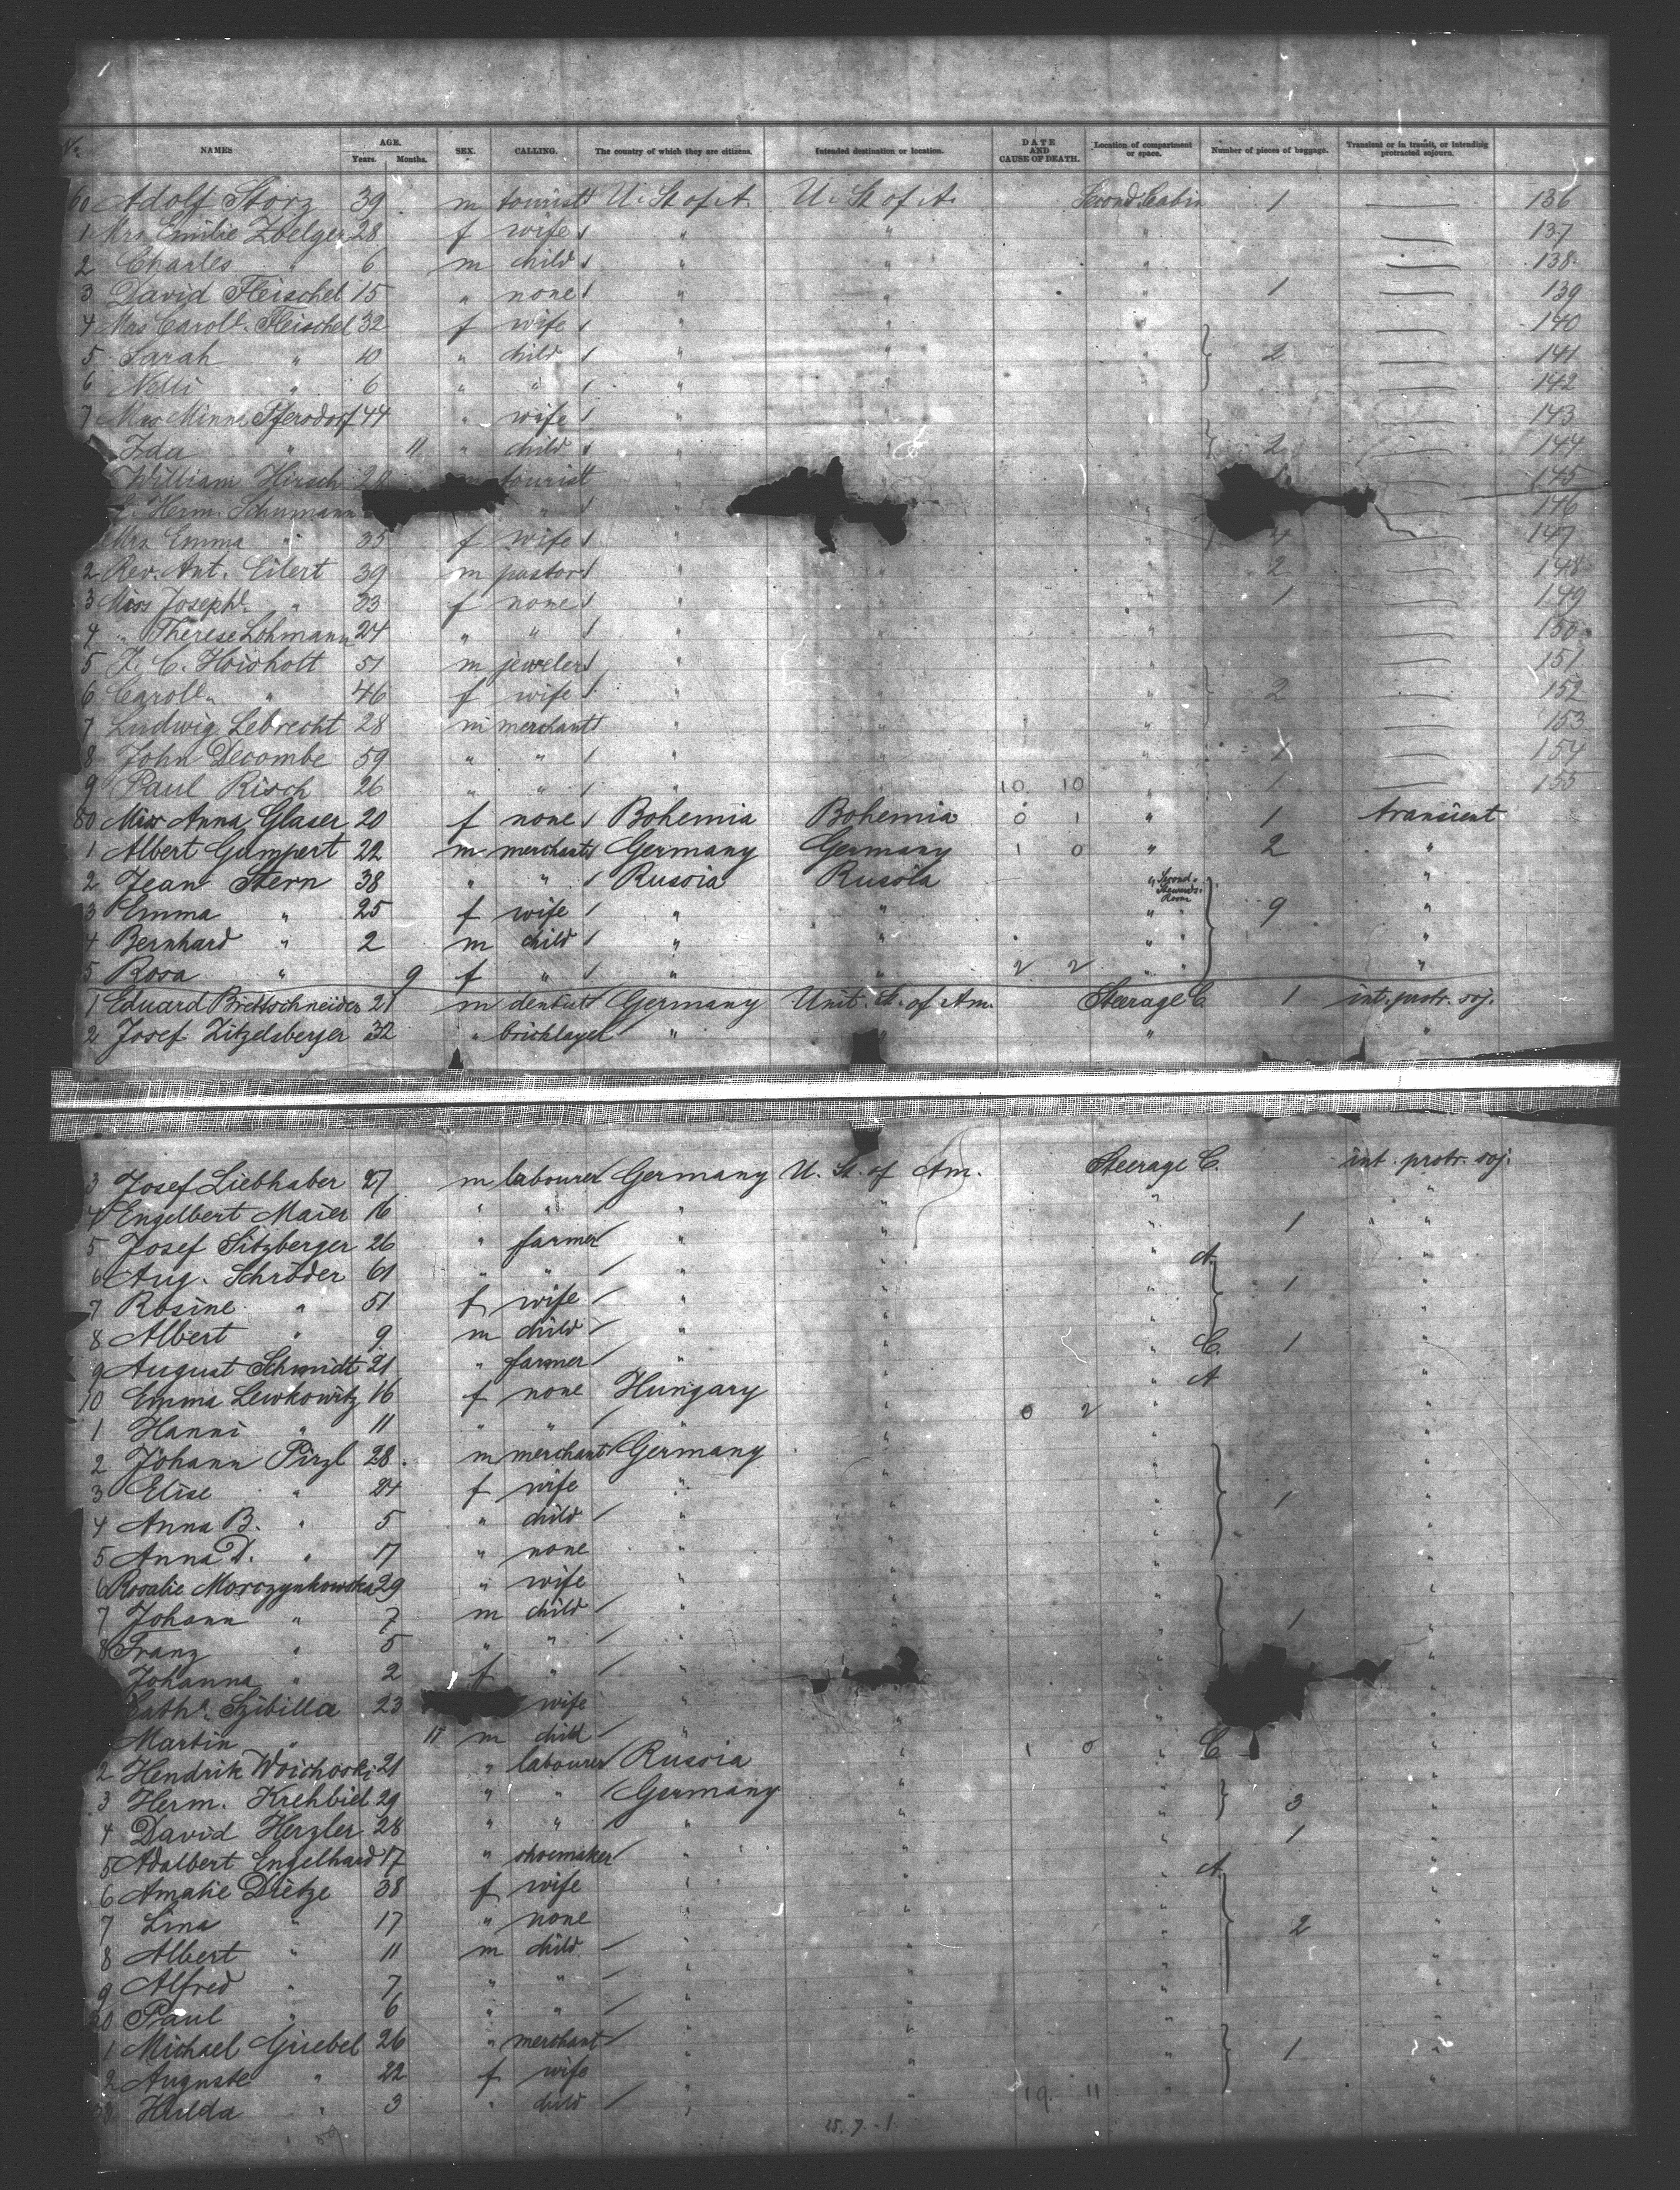 No. NAMES AGE. Years. Months. SEX. CALLING. The country of which they are citizens. Intended destination or location. DATE AND CAUSE OF DEATH. Location of compartment or space. Number of pieces of baggage. Transient or in transit, or intending protracted sojourn.
60 Adolf Storz 39 m tourist U. St of A. U. St of A. Second Cabin 1 — 136
1 Mrs Emilie Zbelger 28 f wife " " " — 137
2 Charles " 6 m child " " " — 138
3 David Fleischel 15 " none " " " 1 — 139
4 Mrs Carole. Fleischel 32 f wife " " " — 140
5 Sarah " 10 " child " " " 2 — 141
6 Nelli " 6 " " " " " — 142
7 Mrs Minna Pfersdorf 44 " wife " " " — 143
Ida " 11 " child " " " 2 — 144
William Hirsch 28 m tourist " " — 145
Herm. Schumann " " " — 146
Mrs Emma " 35 f wife " " 4 — 147
2 Rev. Ant. Eilert 39 m pastor " " " 2 — 148
3 Miss Josephe. " 33 f none " " " 1 — 149
4 " Therese Lohmann 24 " " " " " — 150
5 51 m jeweler " " " — 151
6 Carole. " 46 f wife " " " 2 — 152
7 Ludwig Lebrecht 28 m merchant " " " — 153
8 John Decombe 59 " " " " " 1 — 154
9 Paul Risch 26 " " " " 10 10 " 1 — 155
80 Miss Anna Glaser 20 f none Bohemia Bohemia 0 1 " 1 transient
1 Albert Gumpert 22 m merchant Germany Germany 1 0 " 2 "
2 Jean Stern 38 " " Russia Russia " Second Stewards Room "
3 Emma " 25 f wife " " " " 9 "
4 Bernhard " 2 m child " " " " "
5 Rosa " 9 f " " " 2 2 " " "
1 Eduard Brettschneider 21 m dentist Germany Unit. St. of Am. Steerage C 1 int. protr. soj.
2 Josef Zitzelsberger 32 " bricklayer " " " "
3 Josef Liebhaber 27 m labourer Germany U. St. of Am. Steerage C. int. protr. soj.
4 Engelbert Maier 16 " " " " " 1 "
5 Josef Sitzberger 26 " farmer " " " "
6 Aug. Schröder 61 " " " " " A. 1 "
7 Rosine " 51 f wife " " " "
8 Albert " 9 m child " " " "
9 August Schmidt 21 " farmer " " " C. 1 "
10 Emma Lewkowitz 16 f none Hungary " " A "
1 Hanni " 11 " " " " 0 2 " "
2 Johann Pirzl 28 m merchant Germany " " "
3 Elise " 24 f wife " " " 1 "
4 Anna B. " 5 " child " " " "
5 Anna D. " 17 " none " " " "
6 Rosalie Morczynkowska 29 " wife " " " "
7 Johann " 7 m child " " " 1 "
8 Franz " 5 " " " " " "
Johanna " 2 f " " " "
Cathe. Szibilla 23 wife " " " "
Martin " 11 m child " " " "
2 Hendrik Woichoski 21 " labourer Russia " 1 0 " C "
3 Herm. Krehbiel 29 " " Germany " " 3 "
4 David Herzler 28 " " " " " 1 "
5 Adalbert Engelhard 17 " shoemaker " " " "
6 Amalie Dietze 38 f wife " " " A. "
7 Lina " 17 " none " " " 2 "
8 Albert " 11 m child " " " "
9 Alfred " 7 " " " " " "
20 Paul " 6 " " " " " "
1 Michael Griebel 26 " merchant " " " 1 "
2 Auguste " 22 f wife " " " "
3 Hulda " 3 " child " " 19 11 "